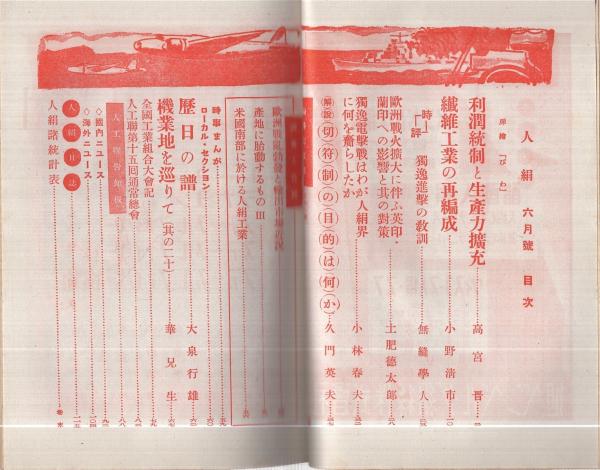 人絹 六月號 目次
扉繪
利潤統制と生產力擴充 高宮晋
纖維工業の再編成 小野淸市
時評 獨逸進擊の敎訓 無縫學人
歐洲戰火擴大に伴ふ英印・
蘭印への影響と其の對策 土肥德太郞
獨逸電擊戰はわが人絹界
に何を齎らしたか 小林春夫
(解說)(切)(符)(制)(の)(目)(的)(は)(何)(か) 久門英夫
歐洲戰亂勃發と輸出市場
產地に胎動するもの III
米國南部に於ける人絹工業
時事まんが
ローカル・セクション
歷日の譜 大泉行雄
機業地を巡りて(其の二十) 華兄生
全國工業組合大會記
人工聯第十五回通常總會
人工聯告知板
◇國內ニユース
◇海外ニユース
人絹日誌
人絹諸統計表 卷末